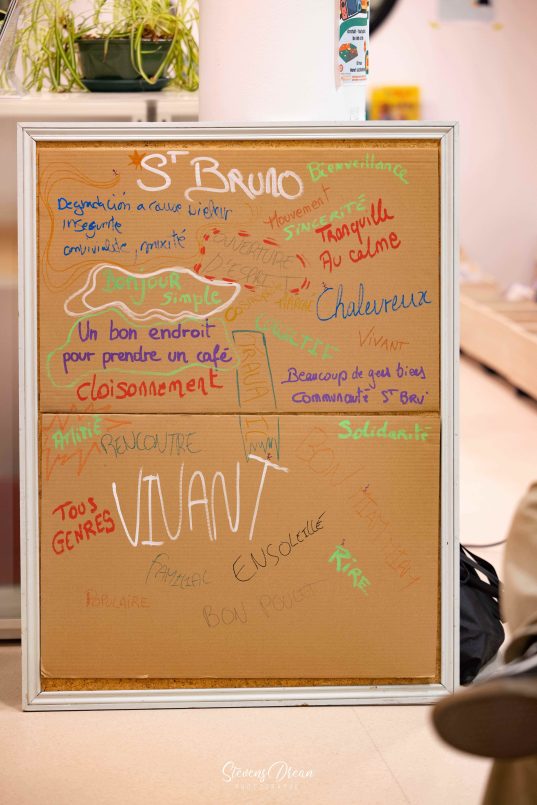 St BRUNO
Bienveillance
Mouvement
SINCERITÉ
Tranquille
Au calme
insecurite
convivialité, mixité
OUVERTURE
D'ESPRIT
BONJOUR
simple
Chaleureux
Un bon endroit
pour prendre un café
VIVANT
TRAVAIL
Beaucoup de gens biens
Communauté St BRU
Cloisonnement
AMITIÉ
RENCONTRE
Solidarité
BON
VIVANT
TOUS
GENRES
ENSOLEILLÉ
FAMILIAL
RIRE
POPULAIRE
BON POULET
Stevens Drean
PHOTOGRAPHE